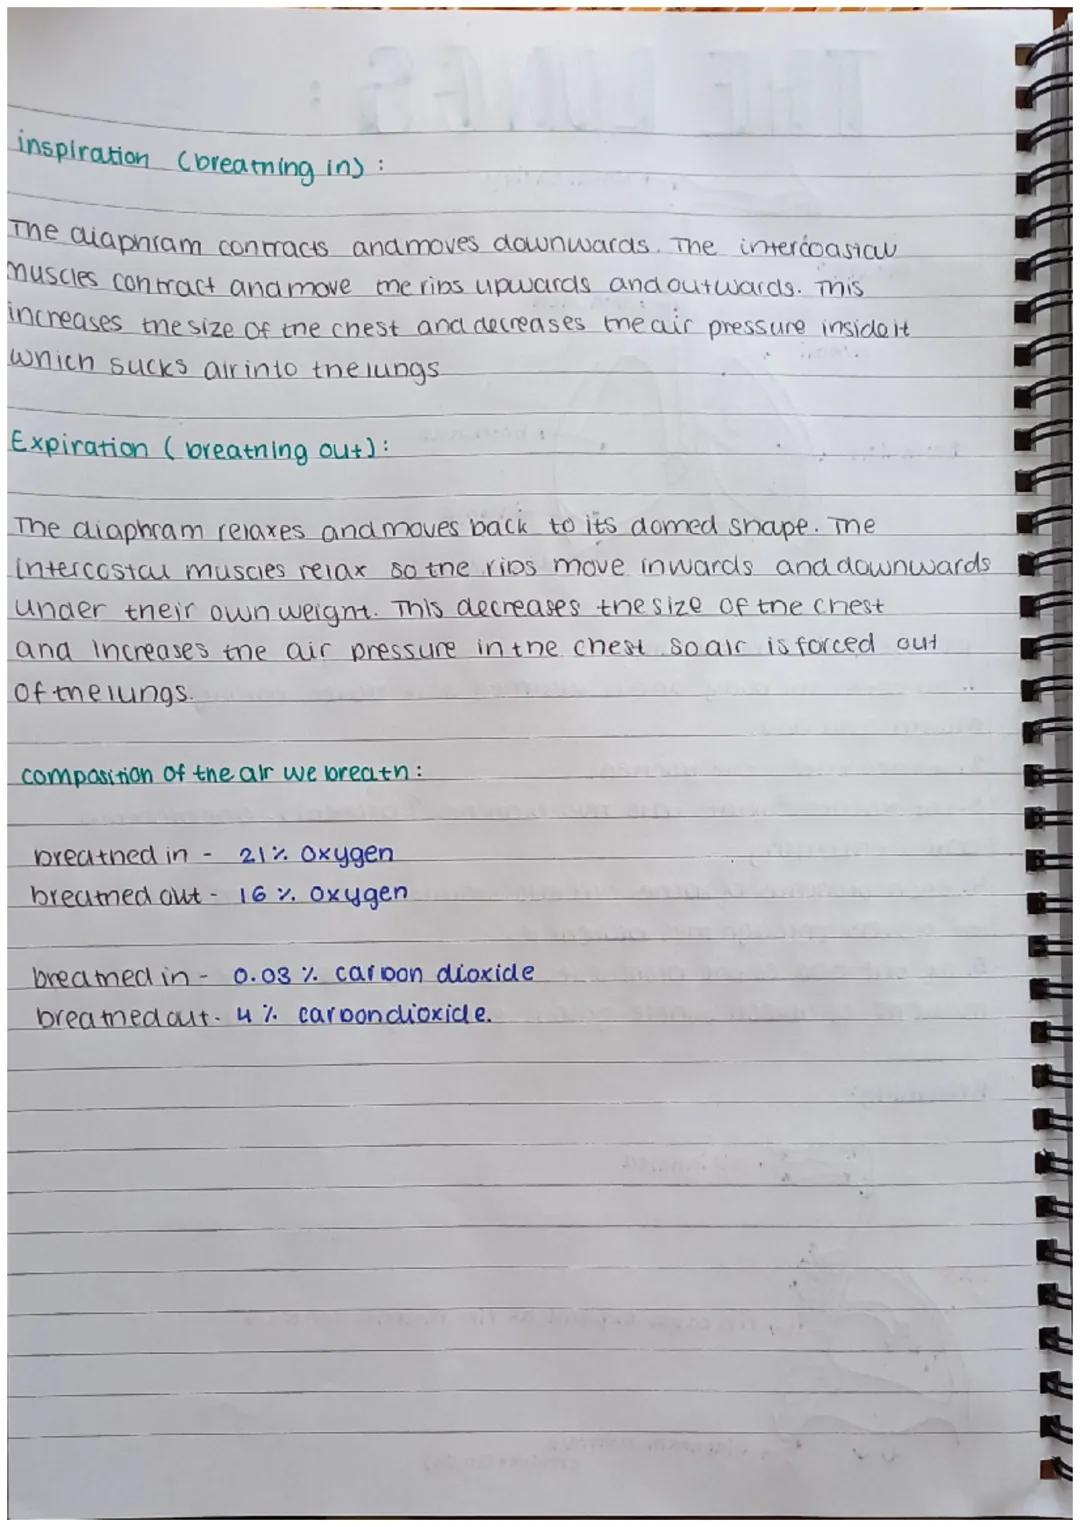 inspiration (breathing in) :
The diaphram contracts and moves downwards. The intercoastal
muscles contract and move the ribs upwards and outwards. This
increases the size of the chest and decreases the air pressure inside it
which sucks air into the lungs
Expiration ( breathing out) :
The diaphram relaxes and moves back to its domed shape. The
intercostal muscles relax so the ribs move inwards and downwards
under their own weight. This decreases the size of the chest
and increases the air pressure in the chest so air is forced out
of the lungs.
composition of the air we breath :
breathed in - 21% oxygen
breathed out - 16 % oxygen
breathed in - 0.03 % carbon dioxide
breathed out - 4 % carbon dioxide.